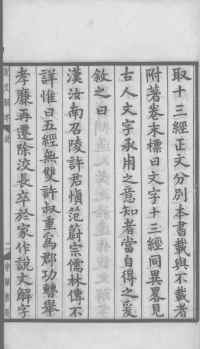 取十三經正文分別本書載與不載者
附著卷末標曰文字十三經同異畧見
古人文字承用之意知者當自得之爰
敘之曰
漢汝南召陵許君愼范蔚宗儒林傳不
詳惟曰五經無雙許叔重爲郡功曹舉
孝廉再遷除洨長卒於家作說文解字